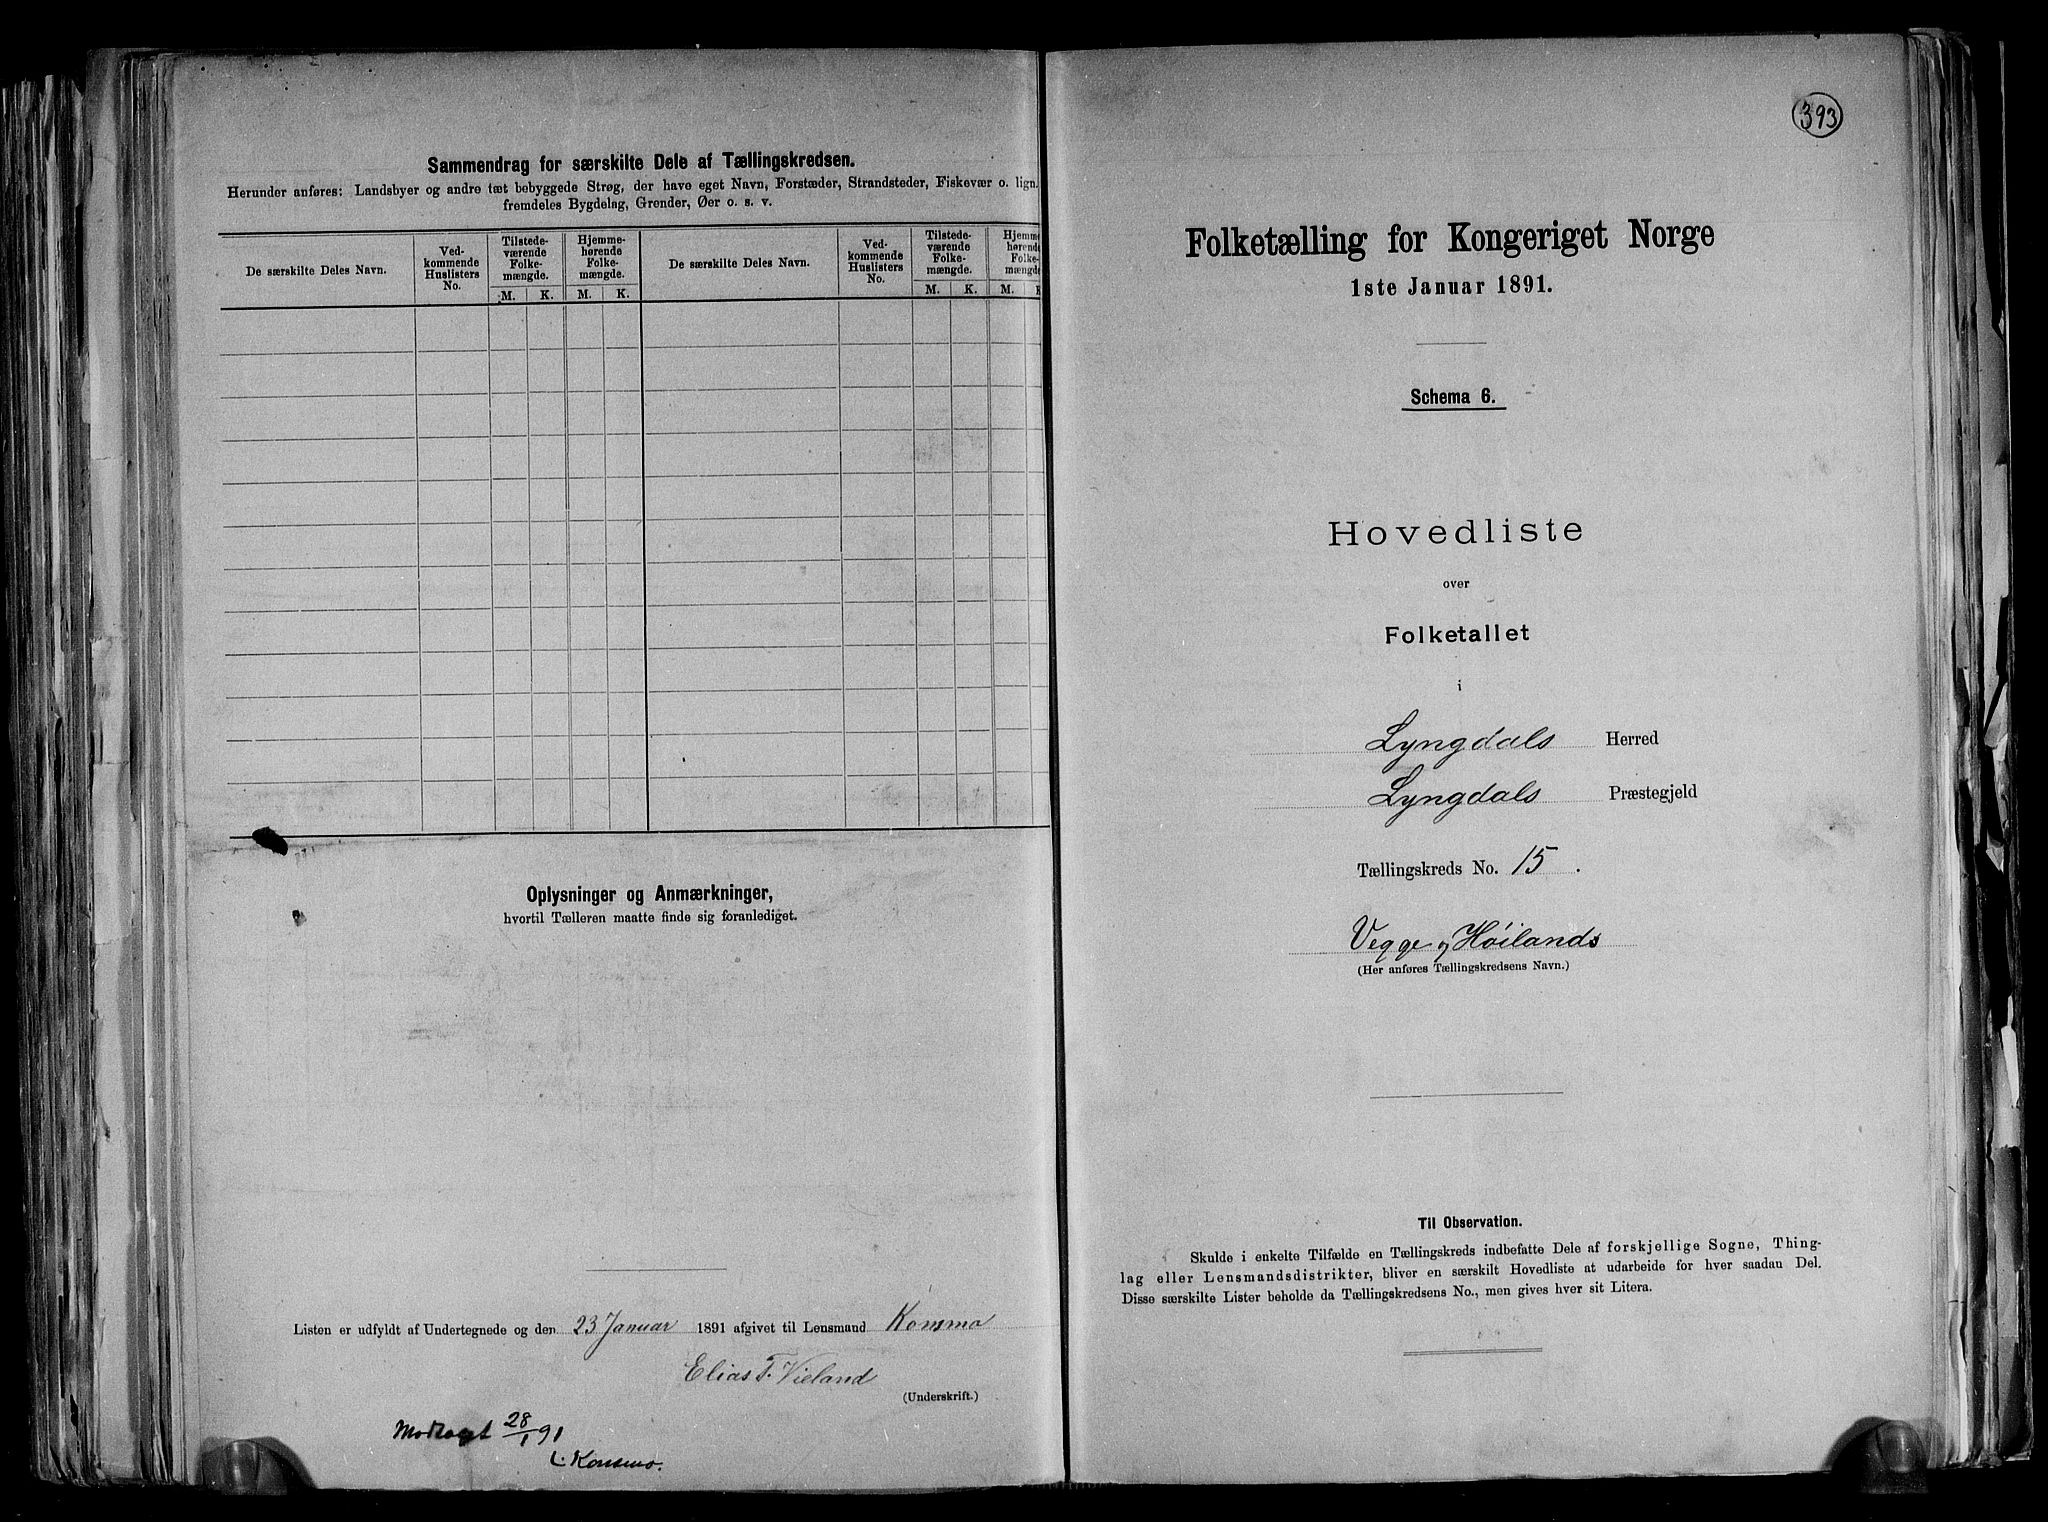 Sammendrag for særskilte Dele af Tællingskredsen.
Herunder anføres: Landsbyer og andre tæt bebyggede Strøg, der have eget Navn, Forstæder, Strandsteder, Fiskevær o. lign.
fremdeles Bygdelag, Grender, Øer o. s. v.
De særskilte Deles Navn.
Ved-
kommende
Huslisters
No.
Tilstede-
værende
Folke-
mængde.
Hjemme-
hørende
Folke-
mængde.
M. K. M. K.
De særskilte Deles Navn.
Ved-
kommende
Huslisters
No.
Tilstede-
værende
Folke-
mængde.
Hjemme-
hørende
Folke-
mængde
M. K. M. K
Oplysninger og Anmærkninger,
hvortil Tælleren maatte finde sig foranlediget.
Listen er udfyldt af Undertegnede og den 23 Januar 1891 afgivet til Lensmand Konsmo
Elias T. Vieland
(Underskrift.)
Modtaget 28/1 91
L. Konsmo.
393
Folketælling for Kongeriget Norge
1ste Januar 1891.
Schema 6.
Hovedliste
over
Folketallet
i
Lyngdals Herred
Lyngdals Præstegjeld
Tællingskreds No. 15.
Vegge og Høilands
(Her anføres Tællingskredsens Navn.)
Til Observation.
Skulde i enkelte Tilfælde en Tællingskreds indbefatte Dele af forskjellige Sogne, Thing-
lag eller Lensmandsdistrikter, bliver en særskilt Hovedliste at udarbeide for hver saadan Del.
Disse særskilte Lister beholde da Tællingskredsens No., men gives hver sit Litera.